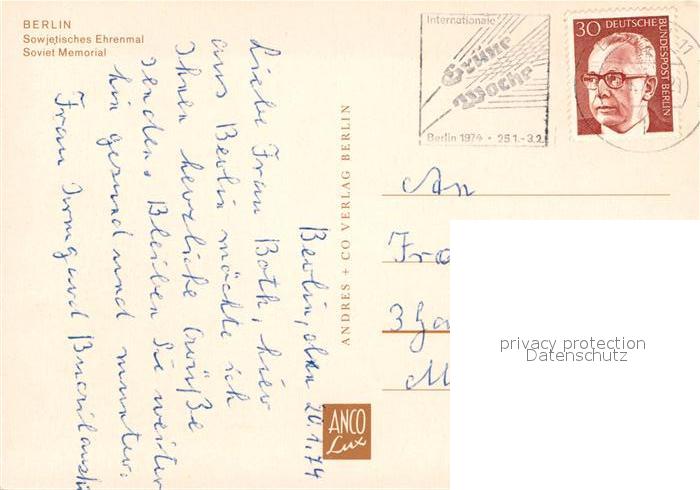 BERLIN
Sowjetisches Ehrenmal
Soviet Memorial
Internationale
Grüne
Woche
Berlin 1974 • 25.1.-3.2.
30 DEUTSCHE
BUNDESPOST BERLIN
ANDRES + CO VERLAG BERLIN
ANCO
Lux
Berlin, den 20.1.74
Liebe Frau Both, hier
aus Berlin möchte ich
Ihnen herzliche Grüße
senden Bleiben Sie weiter
hin gesund und munter.
Frau Irmgard
An
privacy protection
Datenschutz